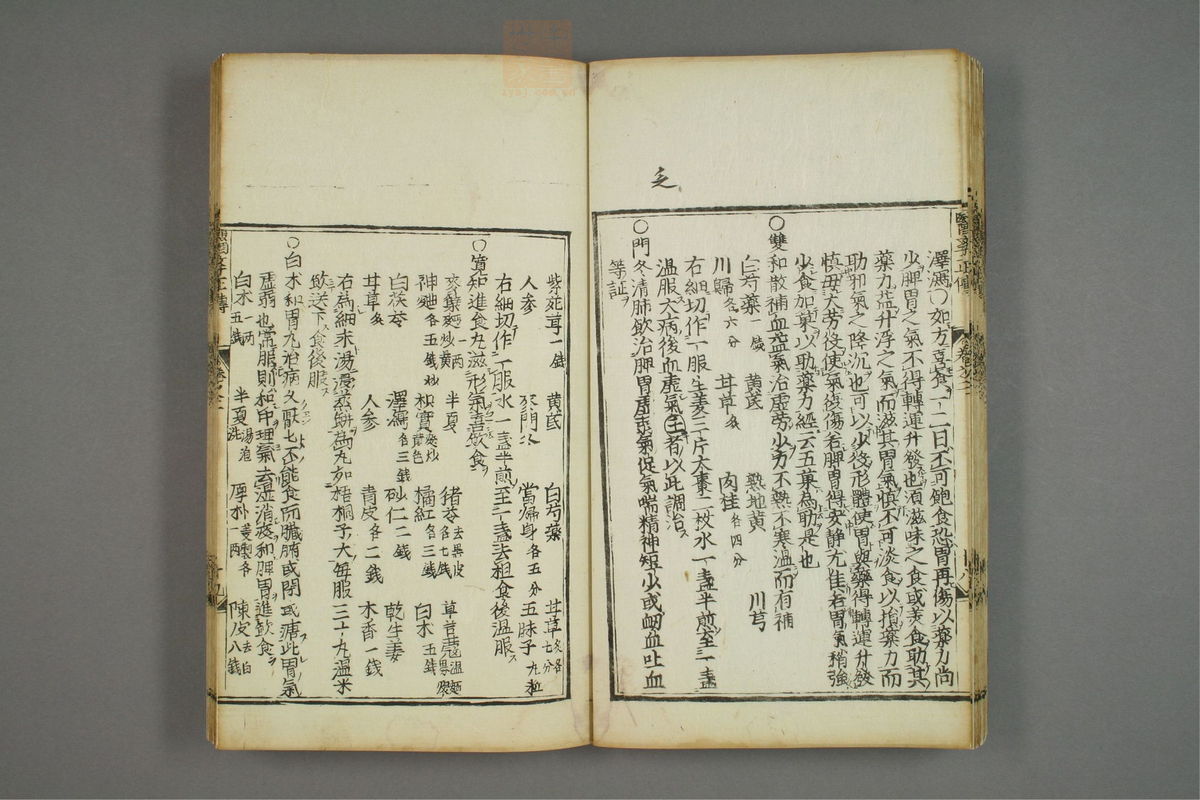 㐧
澤瀉○如方喜食一二日不可飽食恐胃再傷以藥力尚
少脾胃之氣不得轉運升發也須滋味之食或美食助其
藥力益升浮之氣而滋其胃氣慎不可淡食以損藥力而
助邪氣之降沉也可以少役形體使胃與藥得轉運升發
慎毋大勞役使氣復傷若脾胃得安静尤佳若胃氣稍強
少食加菓以助藥力經云五菓為助是也
○雙和散補血益氣治虛勞少力不熱不寒温而有補
白芍藥一錢 黄芪 熟地黄 川芎
川歸各六分 甘草炙 肉桂各四分
右細切作一服生姜三片大棗二枚水一盞半煎至一盞
温服大病後血虛氣者以此調治
○門冬清肺飲治脾胃虛弱氣促氣喘精神短少或衂血吐血
等証
紫菀茸一錢 黄芪 白芍藥 甘草炙各七分
人参 麥門冬 當歸身各五分 五味子九粒
右細切作一服水一盞半煎至一盞去粗食後温服
○寛知進食丸滋形氣喜飲食
麥蘖麪一兩炒黄 半夏 猪苓去黒皮各七錢 草荳蔲温麵裹煨
神麯各五錢炒 枳實麸炒黄色 橘紅各三錢 白朮五錢
白茯苓 澤瀉各三錢 砂仁二錢 乾生姜
甘草炙 人参 青皮各二錢 木香一錢
右為細末湯浸蒸餅為丸如梧桐子大毎服三十丸温米
飲送下食後服
○白朮和胃丸治病久厭厭不能食而臓腑或閉或溏此胃氣
虛弱也常服則和中理氣去湿消痰和脾胃進飲食
白朮一兩五錢 半夏湯泡洗 厚朴姜製各一兩 陳皮去白八錢